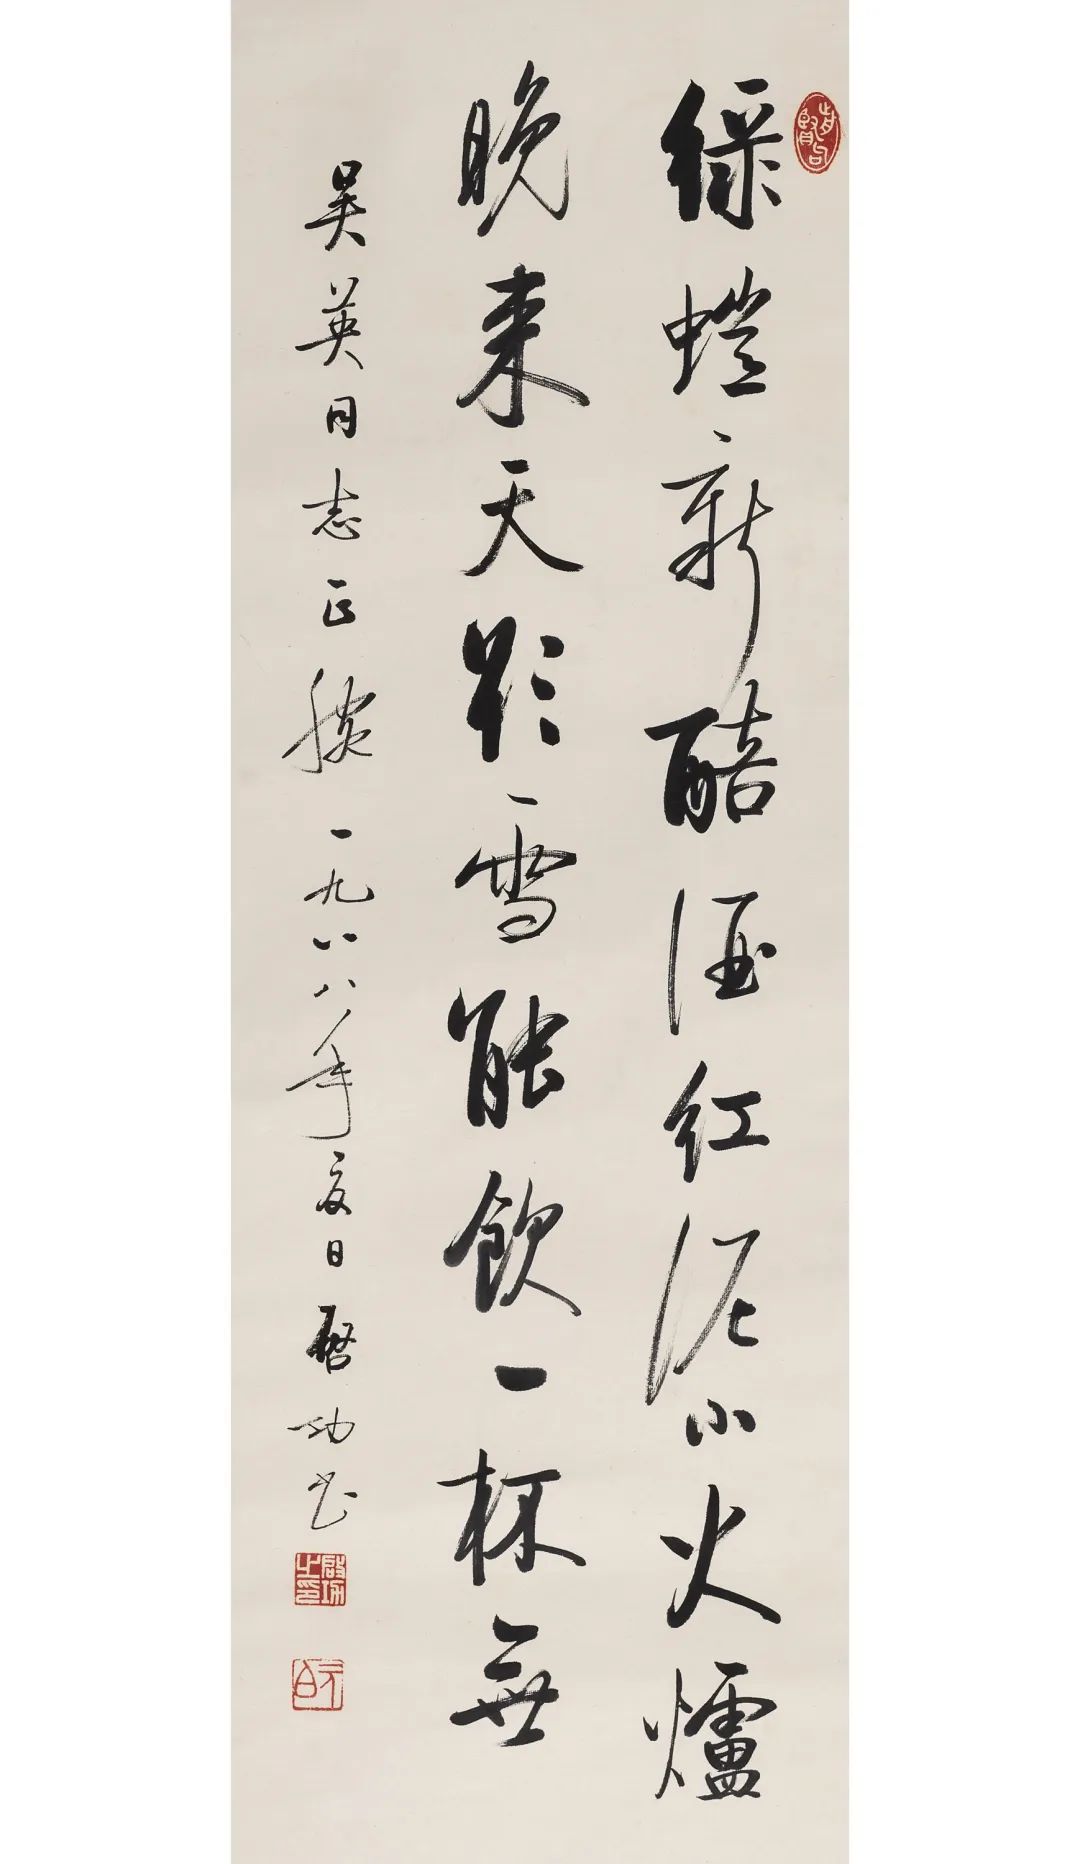 綠螘新醅酒紅泥小火爐
晚来天欲雪能飲一杯無
吴英同志正腕 一九八八年夏日 啓功书
啟功之印
元白